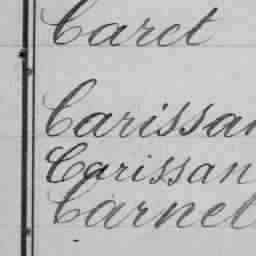 Caret
Carissan
Carissan
Carnet